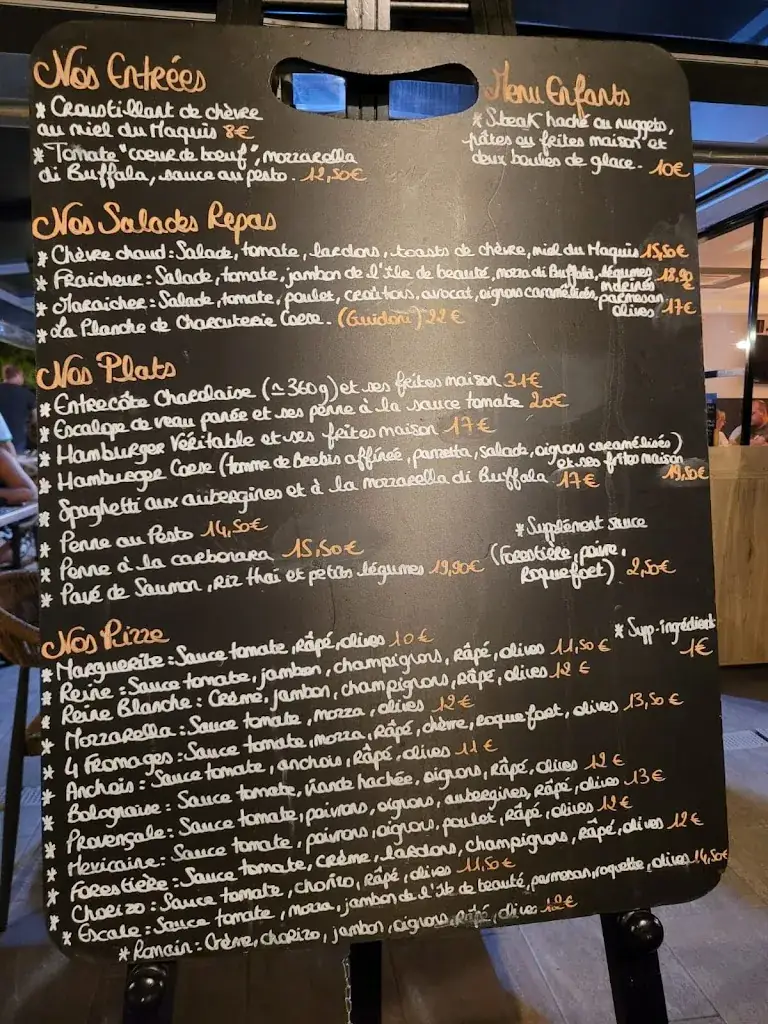 Nos Entrées
* Croustillant de chèvre
au miel du Maquis 8€
* Tomate "coeur de boeuf", mozzarella
di Buffala, sauce au pesto. 12,50€
Menu Enfants
* Steak haché ou nuggets,
pâtes ou frites maison et
deux boules de glace. 10€
Nos Salades Repas
* Chèvre chaud: Salade, tomate, lardons, toasts de chèvre, miel du Maquis 15,50€
* Fraicheur: Salade, tomate, jambon de l'île de beauté, mozza di Buffala, légumes marinés 18,90€
* Maraicher: Salade, tomate, poulet, croûtons, avocat, oignons caramélisés, parmesan olives 17€
* La Planche de Charcuterie Corse. (Guidoni) 22€
Nos Plats
* Entrecôte Charolaise (≃360g) et ses frites maison 31€
* Escalope de veau panée et ses penne à la sauce tomate 20€
* Hamburger Véritable et ses frites maison 17€
* Hamburger Corse (tomme de Brebis affinée, panzetta, salade, oignons caramélisés) et ses frites maison 19,50€
* Spaghetti aux aubergines et à la mozzarella di Buffala 17€
* Penne au Pesto 14,50€
* Penne à la carbonara 15,50€
* Pavé de Saumon, Riz thaï et petits légumes 19,90€
* Supplément sauce
(Forestière, poivre,
Roquefort) 2,50€
Nos Pizze
* Supp. ingrédient
1€
* Marguerite: Sauce tomate, Râpé, olives 10€
* Reine: Sauce tomate, jambon, champignons, Râpé, olives 11,50€
* Reine Blanche: Crème, jambon, champignons, Râpé, olives 12€
* Mozzarella: Sauce tomate, mozza, olives 12€
* 4 Fromages: Sauce tomate, mozza, Râpé, chèvre, roquefort, olives 13,50€
* Anchois: Sauce tomate, anchois, Râpé, olives 11€
* Bolognaise: Sauce tomate, viande hachée, oignons, Râpé, olives 12€
* Provençale: Sauce tomate, poivrons, oignons, aubergines, Râpé, olives 13€
* Mexicaine: Sauce tomate, poivrons, oignons, poulet, Râpé, olives 12€
* Forestière: Sauce tomate, crème, lardons, champignons, Râpé, olives 12€
* Chorizo: Sauce tomate, chorizo, Râpé, olives 11,50€
* Escale: Sauce tomate, mozza, jambon de l'île de beauté, parmesan, roquette, olives 14,50€
* Romain: Crème, chorizo, jambon, oignons, Râpé, olives 12€